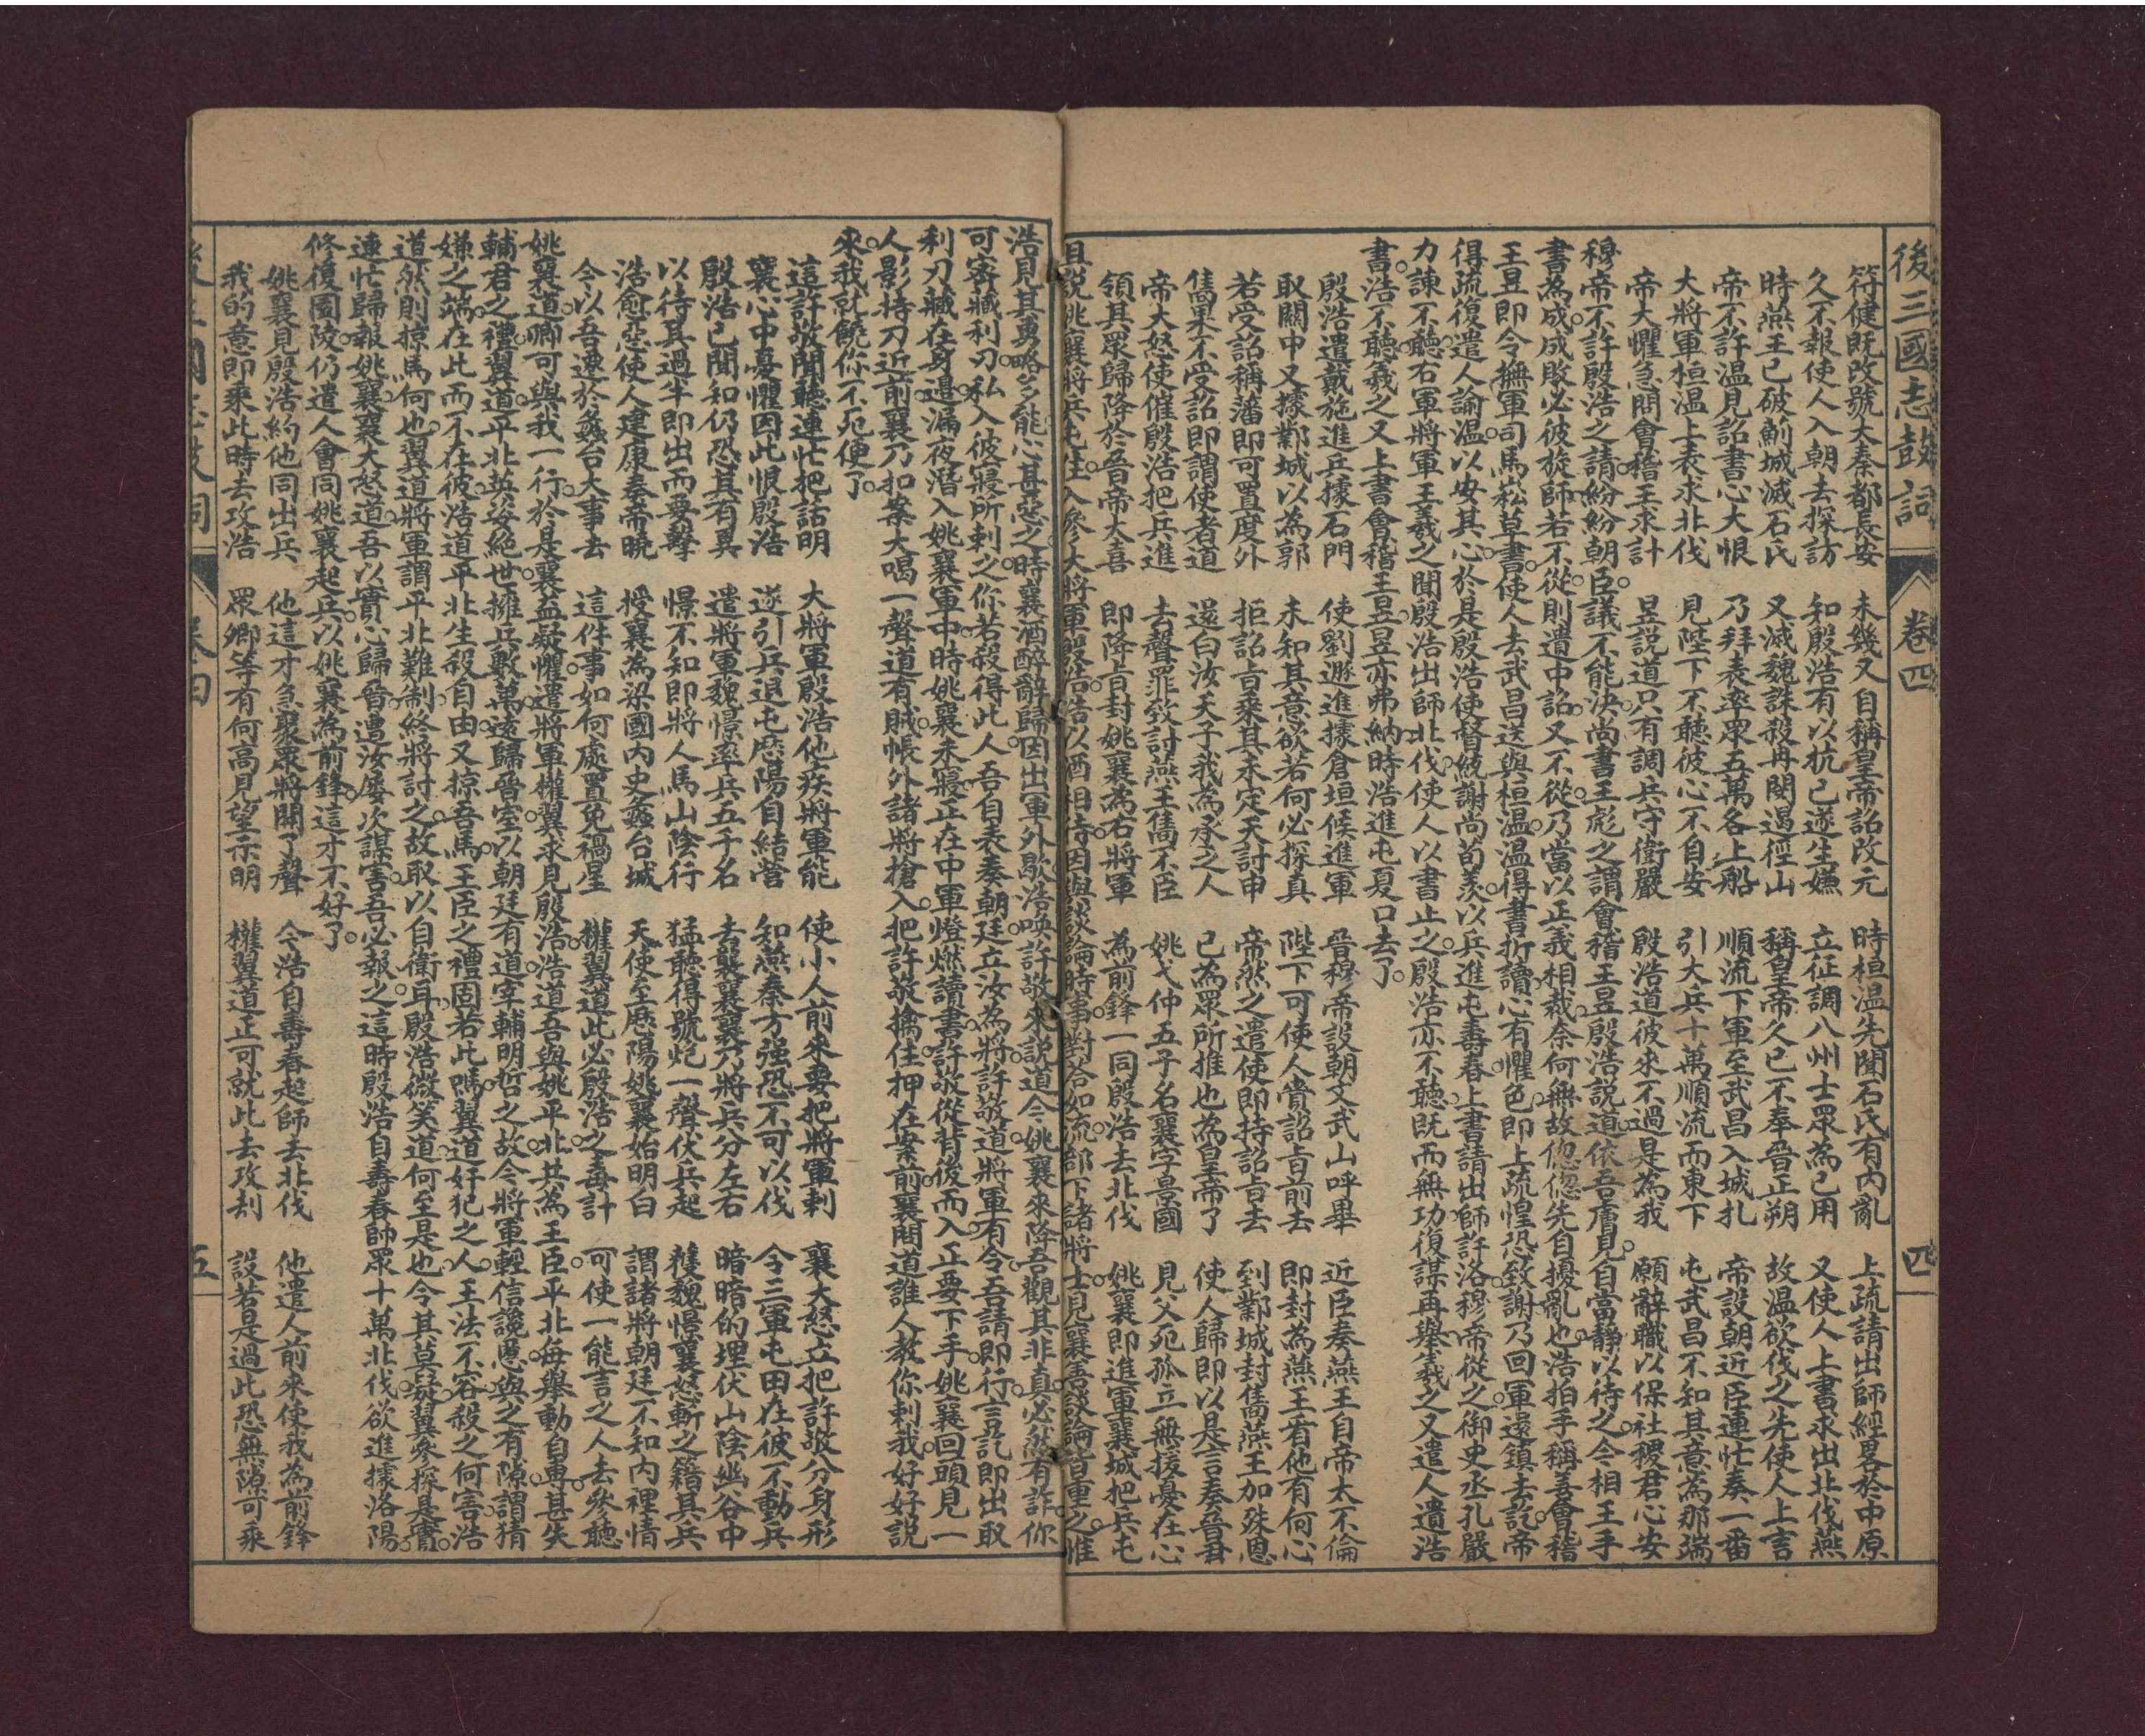 後三國志鼓詞 卷四 四
符健既改號大秦都長安 未幾又自稱皇帝詔改元 時桓温先聞石氏有內亂 上疏請出師經畧於中原
久不報使人入朝去探訪 知殷浩有以抗已遂生嫌 立征調八州士眾為已用 又使人上書求出北伐燕
時燕王已破薊城滅石氏 又滅魏誅殺冉閔遏徑山 稱皇帝久已不奉晉正朔 故温欲伐之先使人上言
帝不許温見詔書心大恨 乃拜表率眾五萬各上船 順流下軍至武昌入城扎 帝設朝近臣連忙奏一番
大將軍桓温上表求北伐 見陛下不聽彼心不自安 引大兵十萬順流而東下 屯武昌不知其意為那端
帝大懼急問會稽王求計 昱說道只有調兵守衛嚴 殷浩道彼來不過是為我 願辭職以保社稷君心安
穆帝不許殷浩之請紛紛朝臣議不能決尚書王彪之謂會稽王昱殷浩說道依吾膚見自當靜以待之令相王手
書為成成敗必彼旋師若不從則遣中詔又不從乃當以正義相裁奈何無故偬偬先自擾亂也浩拍手稱善會稽
王昱即令撫軍司馬崧草書使人去武昌送與桓温温得書折讀心有懼色即上疏惶恐致謝乃回軍還鎮去訖帝
得疏復遣人諭温以安其心於是殷浩使督統謝尚荀羨以兵進屯壽春上書請出師許洛穆帝從之御史丞孔嚴
力諫不聽右軍將軍王羲之聞殷浩出師北伐使人以書止之殷浩亦不聽既而無功復謀再舉羲之又遣人遺浩
書浩不聽羲之又上書會稽王昱昱亦弗納時浩進屯夏口去了
殷浩遣戴施進兵據石門 使劉遯進據倉垣候進軍 晉穆帝設朝文武山呼畢 近臣奏燕王自帝太不倫
取關中又據鄴城以為郭 未知其意欲若何必探真 陛下可使人賫詔旨前去 即封為燕王看他有何心
若受詔稱藩即可置度外 拒詔旨乘其未定天討申 帝然之遣使即持詔旨去 到鄴城封儁燕王加殊恩
儁果不受詔即謂使者道 還白汝天子我為承之人 已為眾所推也為皇帝了 使人歸即以是言奏晉君
帝大怒使催殷浩把兵進 去聲罪致討燕王儁不臣 姚弋仲五子名襄字景國 見父死孤立無援憂在心
領其眾歸降於晉帝大喜 即降旨封姚襄為右將軍 為前鋒一同殷浩去北伐 姚襄即進軍襄城把兵屯
且說姚襄將兵屯住入參大將軍殷浩浩以酒相待因與談論時事對答如流部下諸將士見襄善談論皆重之惟
浩見其勇略多能心甚惡之時襄酒醉辭歸因出軍外歇浩喚許敬來說道今姚襄來降吾觀其非真必然有詐你
可密藏利刃私入彼寢所刺之你若殺得此人吾自表奏朝廷立汝為將許敬道將軍有令吾請即行言訖即出取
利刃藏在身邊漏夜潛入姚襄軍中時姚襄未寢正在中軍燈燃讀書許敬從背後而入正要下手姚襄回頭見一
人影持刀近前襄乃扣案大喝一聲道有賊帳外諸將搶入把許敬擒住押在案前襄問道誰人教你刺我好好說
來我就饒你不死便了
這許敬聞聽連忙把話明 大將軍殷浩他疾將軍能 使小人前來要把將軍刺 襄大怒立把許敬分身形
襄心中憂懼因此恨殷浩 遂引兵退屯厯陽自結營 知燕秦方強恐不可以伐 令三軍屯田在彼不動兵
殷浩已聞知仍恐其有異 遣將軍魏憬率兵五千名 去襲襄襄乃將兵分左右 暗暗的埋伏山陰幽谷中
以待其過半即出而要擊 憬不知即將人馬山陰行 猛聽得號炮一聲伏兵起 䕶魏憬襄怒斬之籍其兵
浩愈惡使人建康奏帝曉 授襄為梁國內史蠡台城 天使至厯陽姚襄始明白 謂諸將朝廷不知內裡情
今以吾遷於蠡台大事去 這件事如何處置免禍星 權翼道此必殷浩之毒計 可使一能言之人去參聽
姚襄道卿可與我一行於是襄益疑懼遣將軍權翼求見殷浩浩道吾與姚平北共為王臣平北每舉動自專甚失
輔君之禮翼道平北英姿絕世擁兵數萬遠歸晉室以朝廷有道宰輔明哲之故今將軍輕信讒慝與之有隙謂猜
嫌之端在此而不在彼浩道平北生殺自由又掠吾馬王臣之禮固若此嗎翼道奸犯之人王法不容殺之何害浩
道然則掠馬何也翼道將軍謂平北難制終將討之故取以自衛耳殷浩微笑道何至是也今其莫疑翼參探是實
連忙歸報姚襄襄大怒道吾以實心歸晉遭汝屢次謀害吾必報之這時殷浩自壽春帥眾十萬北伐欲進據洛陽
修復園陵仍遣人會同姚襄起兵以姚襄為前鋒這才不好了
姚襄見殷浩約他同出兵 他這才急聚眾將開了聲 今浩自壽春起師去北伐 他遣人前來使我為前鋒
我的意即乘此時去攻浩 眾鄉等有何高見望示明 權翼道正可就此去攻刦 設若是過此恐無隙可乘
五